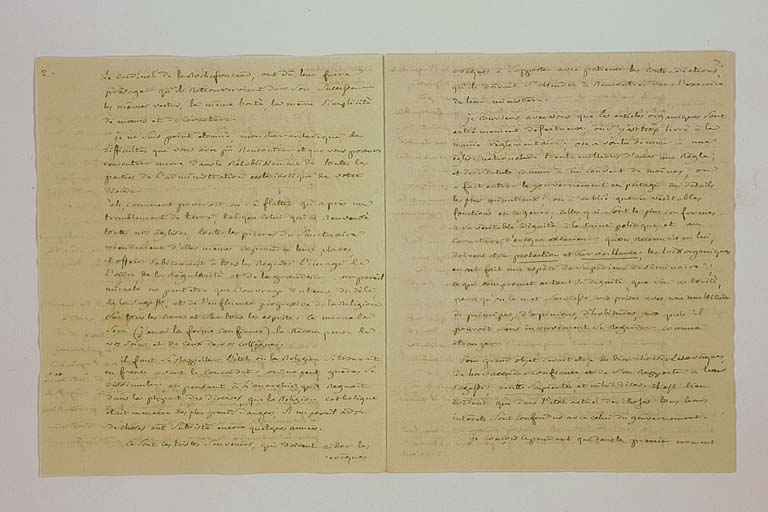 2.
le cardinal de la Rochefoucauld, ont dû leur faire
présager qu'ils retrouveroient dans son successeur
les mêmes vertus, la même bonté la même simplicité
de mœurs et de caractère.
je ne suis point étonné, mon cher des
difficultés que vous avez pu rencontrer et que vous pourrez
rencontrer encore dans le Rétablissement de toutes les
parties de l'administration ecclésiastique de votre
diocèse.
eh comment pourroit on se flatter qu'après un
tremblement de terre, tel que celui qui a renversé
toutes nos églises, toutes les pierres du Sanctuaire
viendroient d'elles mêmes reprendre leurs places,
et offrir subitement à tous les regards l'image de
l'ordre, de la régularité et de la grandeur. un pareil
miracle ne peut être que l'ouvrage du tems du zèle
de la sagesse, et de l'influence progressive de la Religion
sur tous les cœurs et sur tous les esprits. ce miracle
sera (j'en ai la ferme confiance) la Récompense de
vos soins et de ceux de vos collègues.
il faut se rappeller l'état où la Religion se trouvait
en france avant le concordat. on ne peut guères se
dissimuler, en pensant à l'anarchie qui régnait
dans la plupart des diocèses, que la Religion catholique
était menacée des plus grands dangers, si un pareil ordre
de choses eut subsisté encore quelques années.
ce sont ces tristes souvenirs, qui doivent aider les
évêques
évêques à supporter avec patience les contradictions,
qu'ils doivent s'attendre à rencontrer dans l'exercice
de leur ministère.
je conviens avec vous que les articles organiques sont
extrêmement défectueux, on s'y est trop livré à la
manie réglementaire; on a voulu donner à une
église nationale trente millions d'âmes une Règle,
et des statuts comme à un couvent de moines, on
a fait entrer le gouvernement en partage de détails
les plus minutieux; on a oublié que ses véritables
fonctions en ce genre, celles qui sont le plus conformes
à sa véritable dignité, à la saine politique, et au
caractère d'évêque extérieur qu'on reconnoit en lui,
doivent être protection et surveillance. les loix organiques
en ont fait une espèce de supérieur de séminaire;
ce qui compromet autant sa dignité que son autorité,
parce qu'on le met sans cesse aux prises avec une multitude
de principes, d'opinions, d'habitudes, aux quels il
pouvoit sans inconvénient se regarder comme
étranger.
Son grand objet devoit être de bien choisir les évêques
de leur accorder confiance et de s'en rapporter à leur
sagesse,
évident que dans l'état actuel des choses tous leurs
intérêts sont confondus avec celui du gouvernement.
je conçois cependant que dans le premier moment